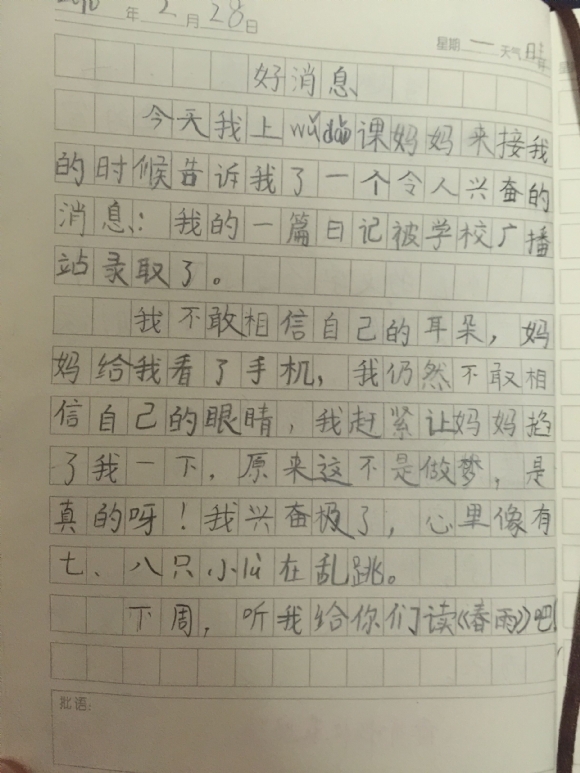 年2月28日
星期一天气晴
好消息
今天我上wǔdǎo课妈妈来接我
的时候告诉我了一个令人兴奋的
消息：我的一篇日记被学校广播
站录取了。
我不敢相信自己的耳朵，妈
妈给我看了手机，我仍然不敢相
信自己的眼睛，我赶紧让妈妈
了我一下，原来这不是做梦，是
真的呀！我兴奋极了，心里像有
七、八只小lù在乱跳。
下周，听我给你们读《春雨》吧！
批语：